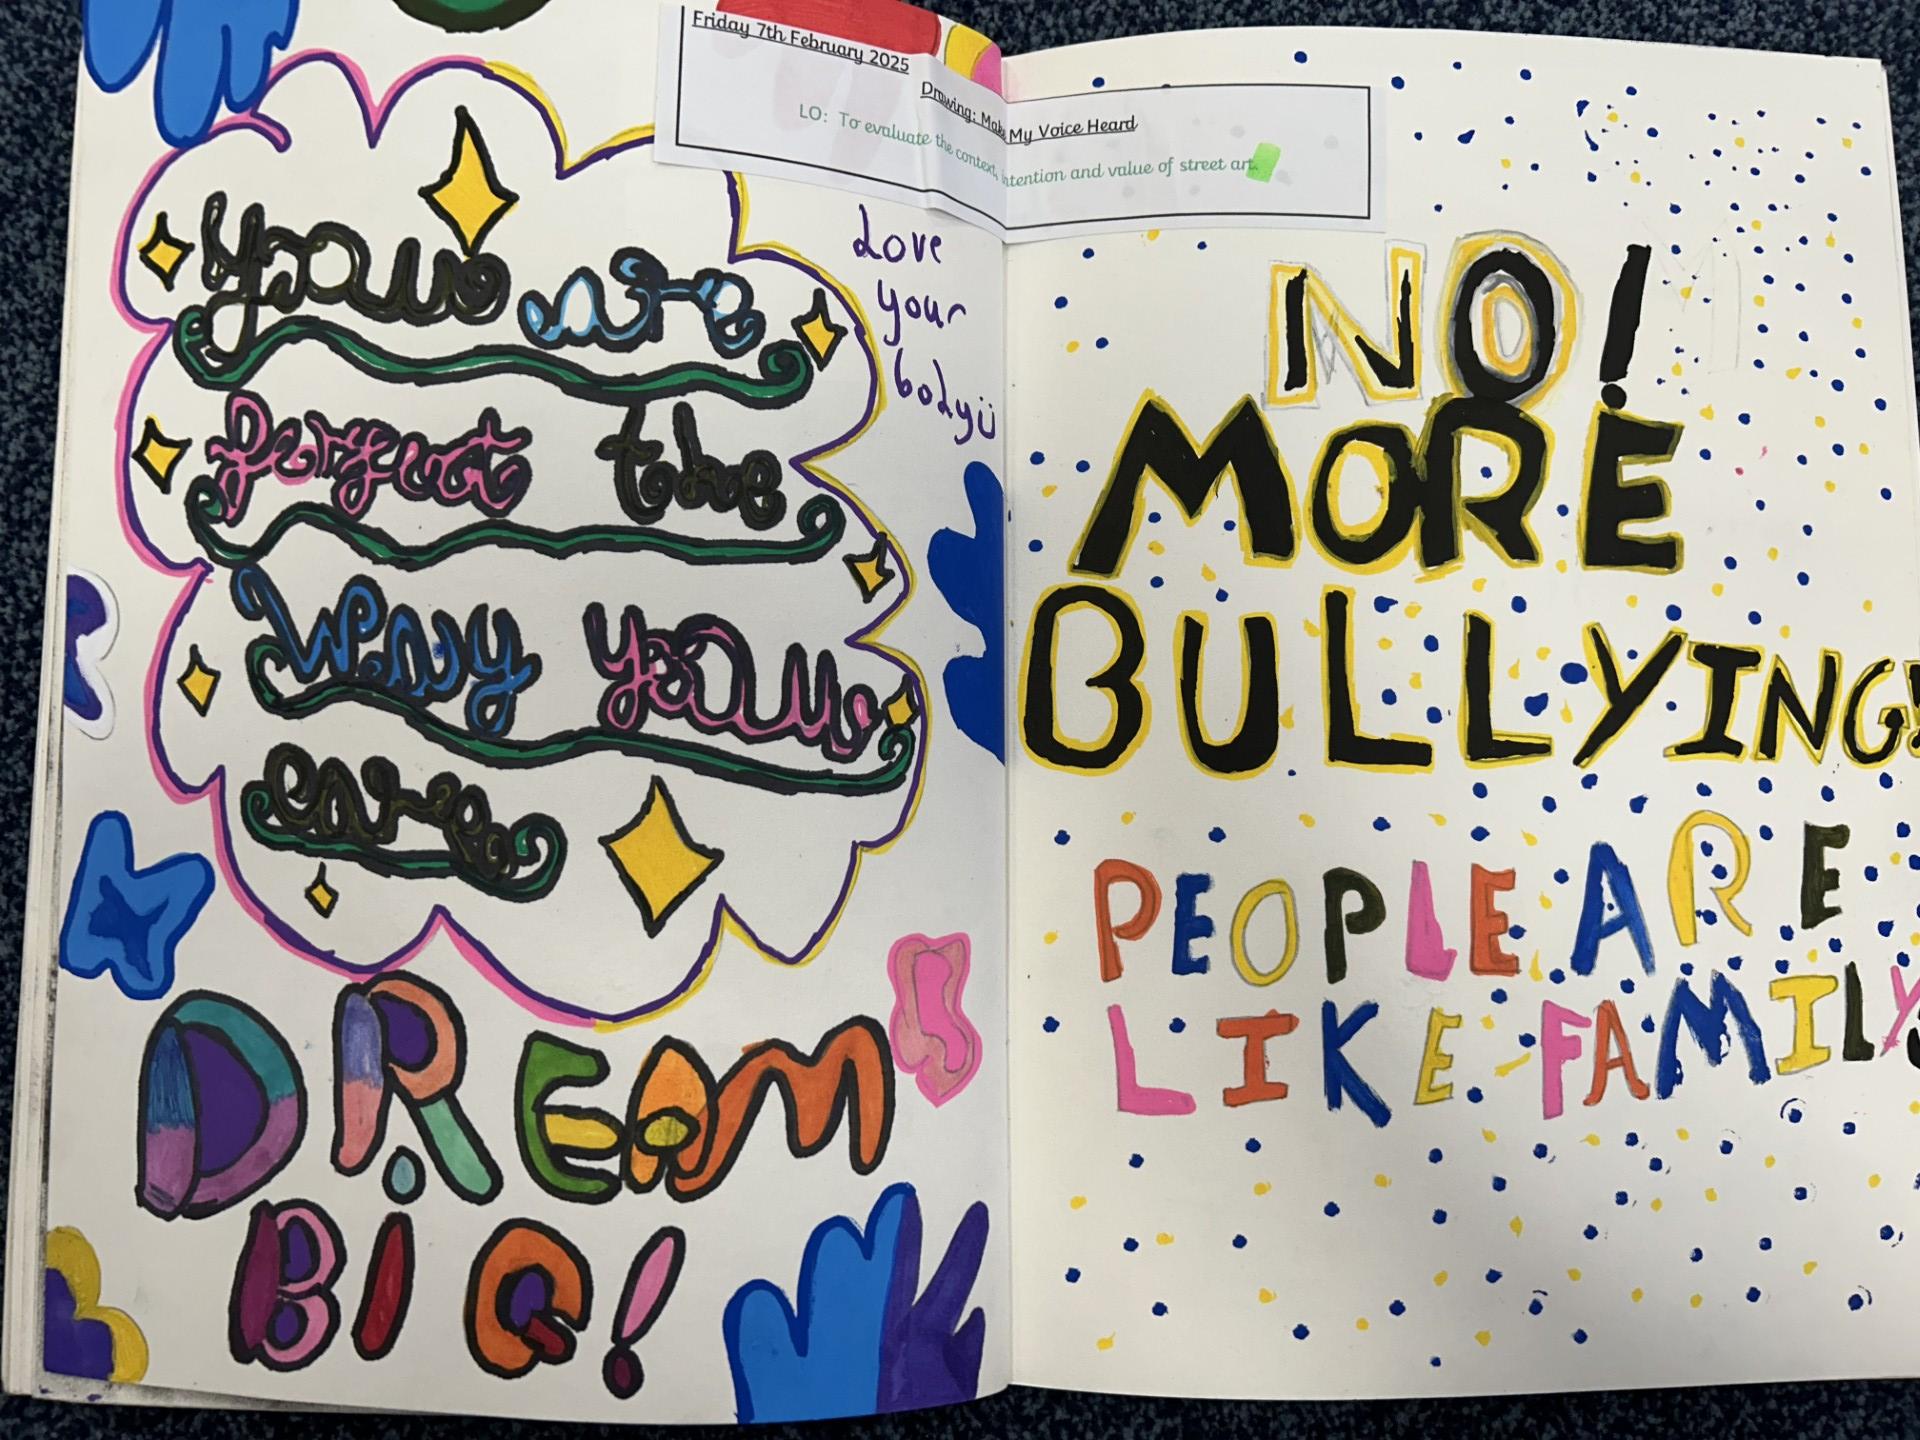 Friday 7th February 2025
Drawing: Make My Voice Heard
LO: To evaluate the context, intention and value of street art.
you are
perfect the
way you
are
Love
your
body ü
DREAM
BIG!
NO!
MORE
BULLYING!
PEOPLE ARE
LIKE FAMILY